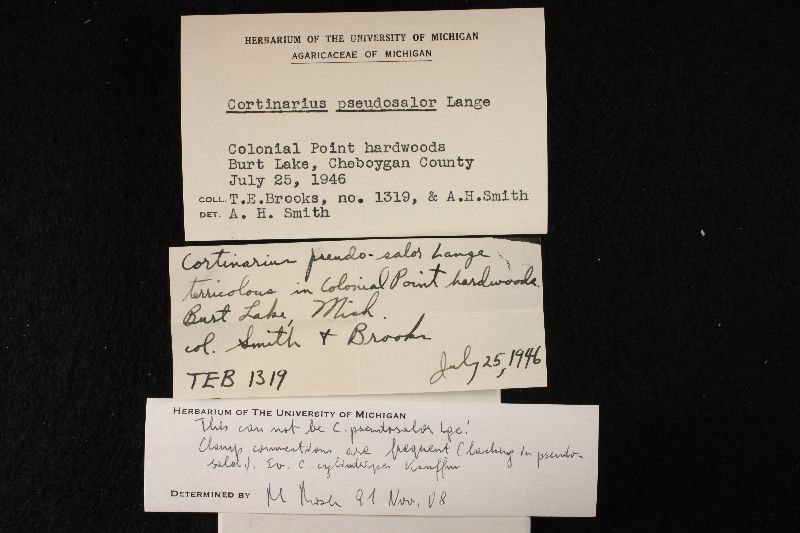 HERBARIUM OF THE UNIVERSITY OF MICHIGAN
AGARICACEAE OF MICHIGAN
Cortinarius pseudosalor Lange
Colonial Point hardwoods
Burt Lake, Cheboygan County
July 25, 1946
COLL. T.E.Brooks, no. 1319, & A.H.Smith
DET. A. H. Smith
Cortinarius pseudo-salor Lange
terricolous in Colonial Point hardwoods.
Burt Lake, Mich.
col. Smith & Brooks
TEB 1319
July 25, 1946
HERBARIUM OF THE UNIVERSITY OF MICHIGAN
This can not be C. pseudosalor Lge!
Clamp connections are frequent (lacking in pseudo-
salor). Ev. C. cylindripes Kauffm
DETERMINED BY M 91 Nov. 08